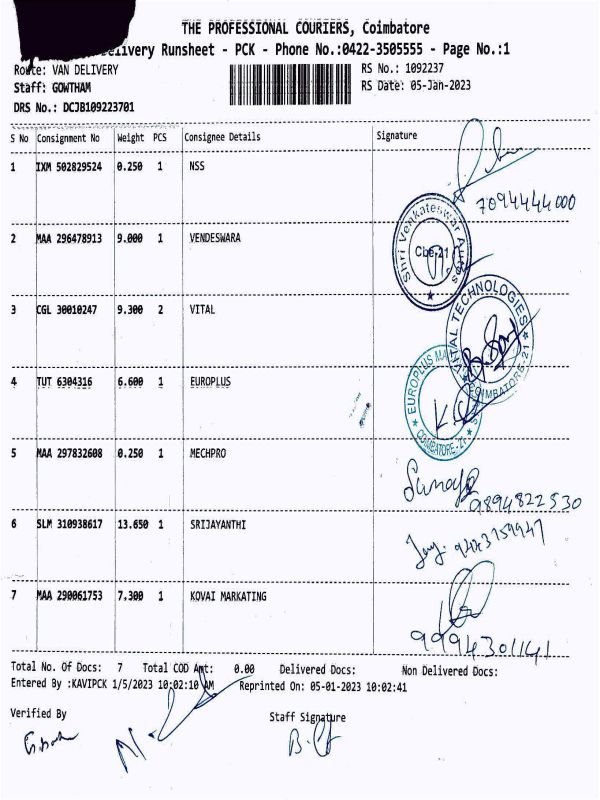 THE PROFESSIONAL COURIERS, Coimbatore
Delivery Runsheet - PCK - Phone No.:0422-3505555 - Page No.:1
Route: VAN DELIVERY RS No.: 1092237
Staff: GOWTHAM RS Date: 05-Jan-2023
DRS No.: DCJB109223701
S No Consignment No Weight PCS Consignee Details Signature
1 IXM 502829524 0.250 1 NSS
7094444000
2 MAA 296478913 9.000 1 VENDESWARA
Shri Venkateswar Autos
Cbe-21
3 CGL 30010247 9.300 2 VITAL
VITAL TECHNOLOGIES
COIMBATORE-21
4 TUT 6304316 6.600 1 EUROPLUS
EUROPLUS
COIMBATORE-21
5 MAA 297832608 0.250 1 MECHPRO
9894822530
6 SLM 310938617 13.650 1 SRIJAYANTHI
7 MAA 290061753 7.300 1 KOVAI MARKATING
9994301141
Total No. Of Docs: 7 Total COD Amt: 0.00 Delivered Docs: Non Delivered Docs:
Entered By :KAVIPCK 1/5/2023 10:02:10 AM Reprinted On: 05-01-2023 10:02:41
Verified By Staff Signature